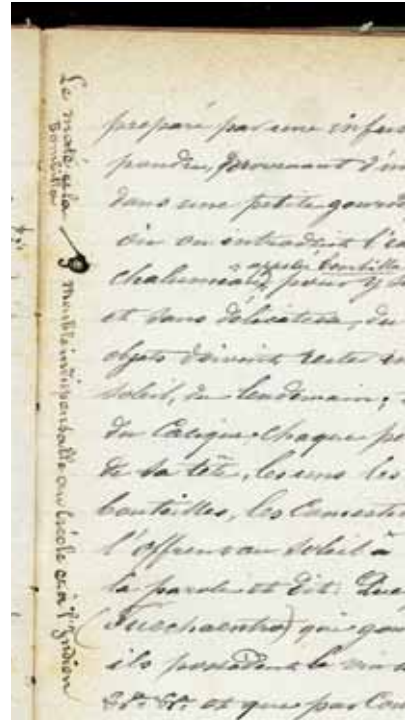 Le maté et la
bombilla
Meuble indispensable au Créole et à l'Indien
préparé par une infus
poudre, provenant d'un
dans une petite gourde
où on introduit l'ea
appelés bombilla
chalumeau pour y
et sans délicatesse, du
objets doivent rester en
soleil, du lendemain;
du Cacique. Chaque pe
de sa tête, les uns les
bouteilles, les
l'offrens au soleil à
la parole et dit: Que
qui gou
ils possèdent le
et que par